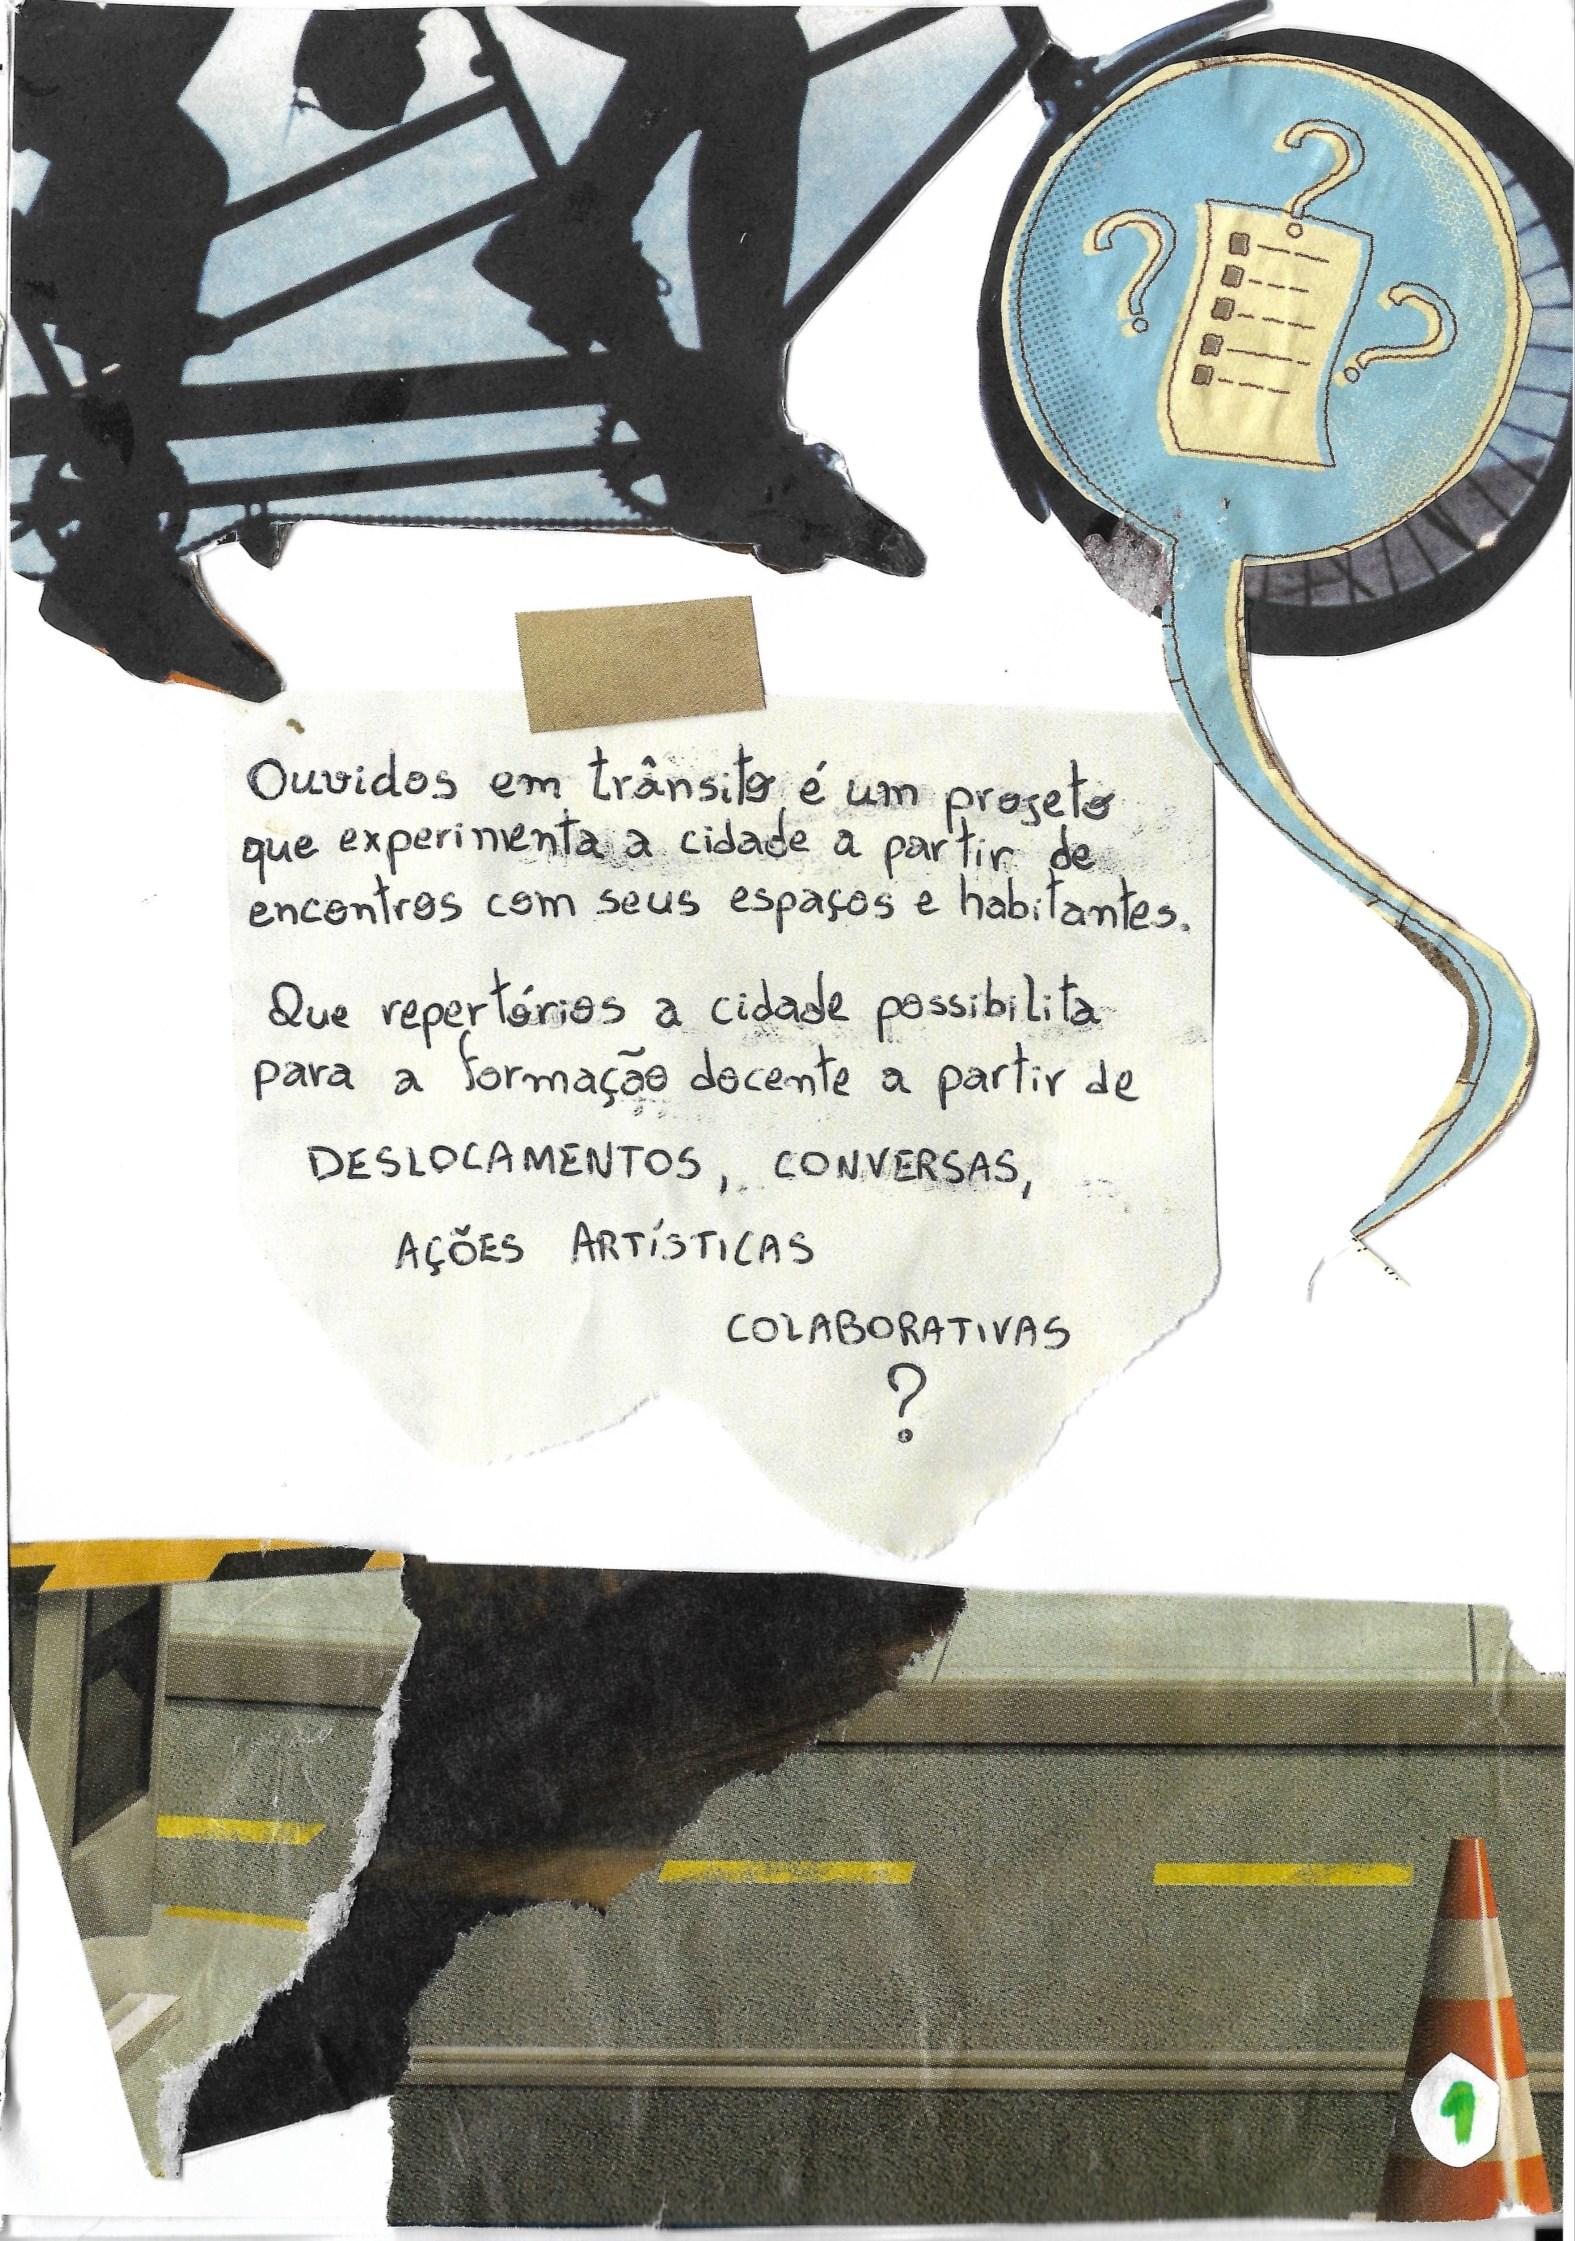 Ouvidos em trânsito é um projeto
que experimenta a cidade a partir de
encontros com seus espaços e habitantes.
Que repertórios a cidade possibilita
para a formação docente a partir de
DESLOCAMENTOS, CONVERSAS,
AÇÕES ARTÍSTICAS
COLABORATIVAS
?
1